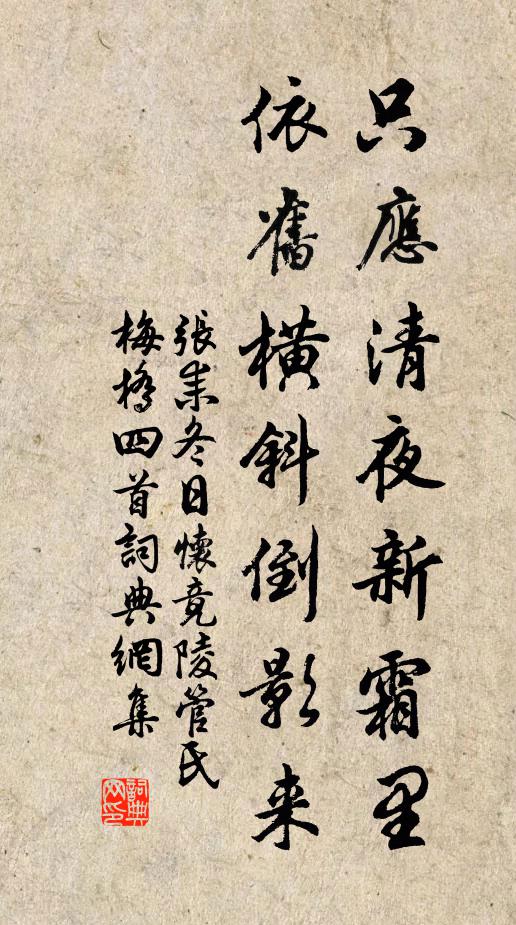 只應清夜新霜里
依舊橫斜倒影来
張耒冬日懷竟陵管氏
梅橋四首詞典網集
詞典
网印